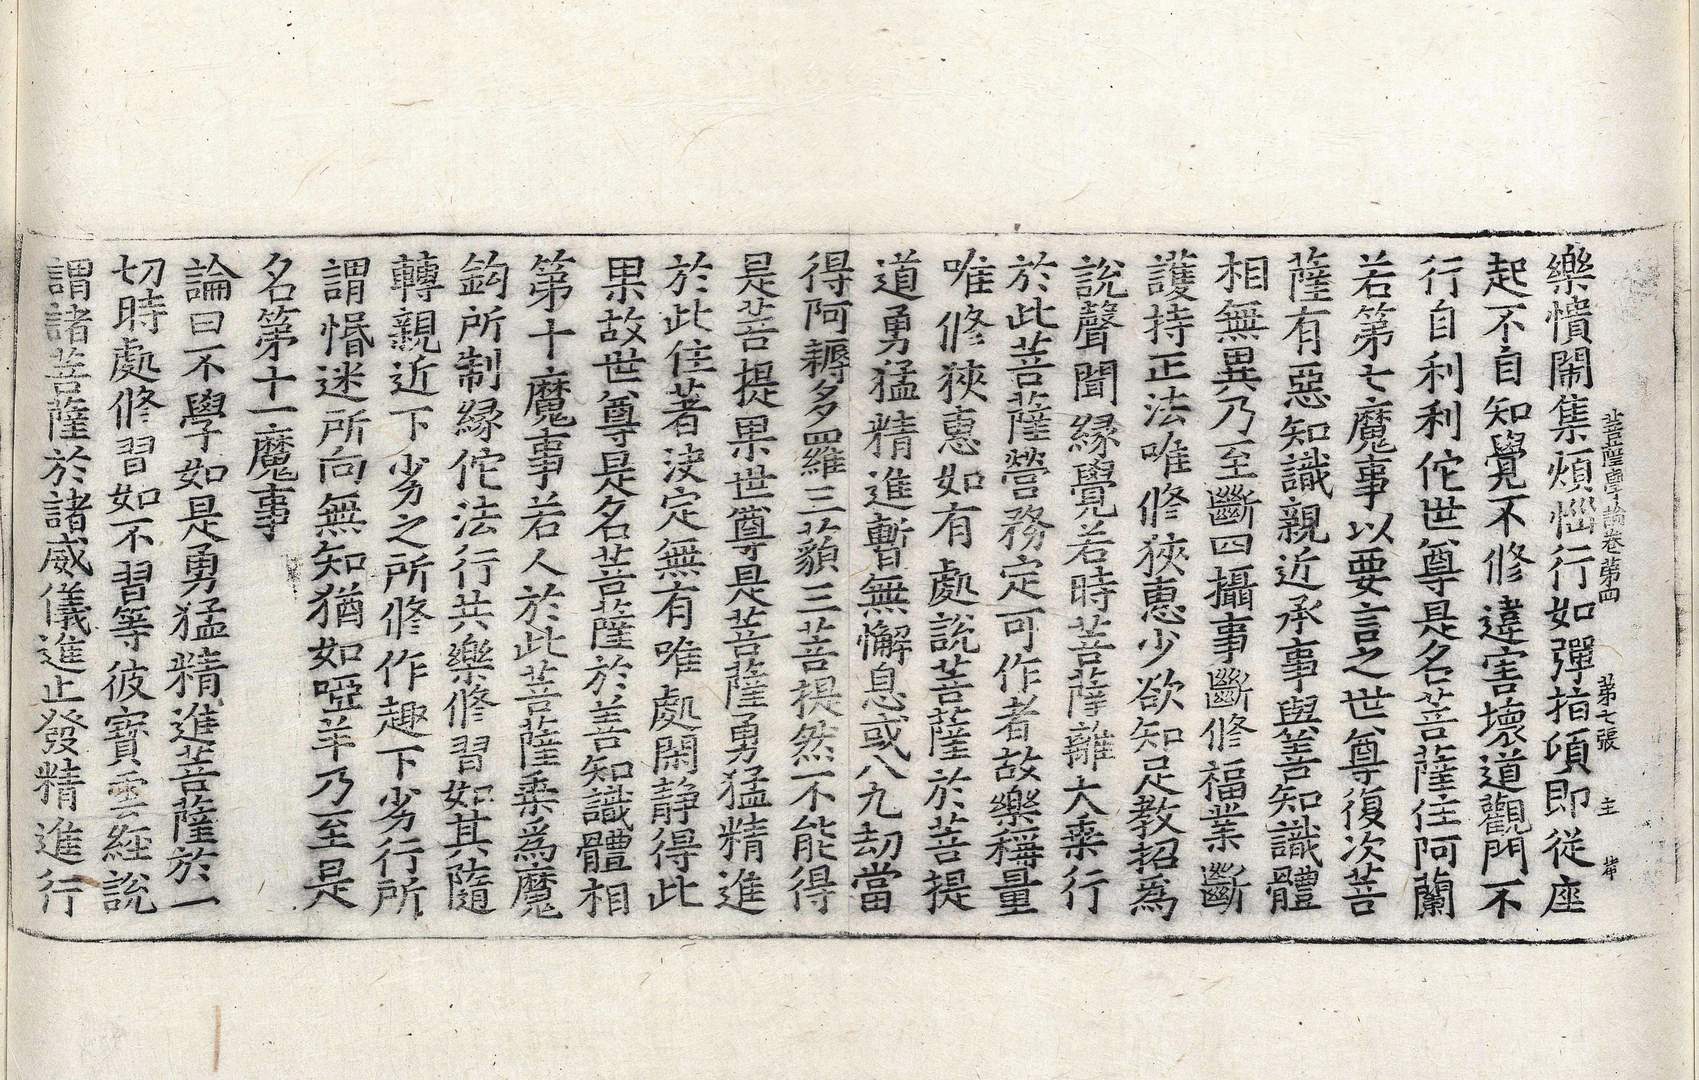 菩薩學論卷第四 第七張 主
樂憒閙集煩惱行如彈指頃即從座
起不自知覺不修違害壞道觀門不
行自利利佗世尊是名菩薩住阿蘭
若第七魔事以要言之世尊復次菩
薩有惡知識親近承事與善知識體
相無異乃至斷四攝事斷修福業斷
護持正法唯修狹惠少欲知足教招為
說聲聞緣覺若時菩薩離大乘行
於此菩薩營務定可作者故樂稱量
唯修狹惠如有處說菩薩於菩提
道勇猛精進暫無懈息或八九劫當
得阿耨多羅三藐三菩提然不能得
是菩提果世尊是菩薩勇猛精進
於此住著決定無有唯處閑静得此
果故世尊是名菩薩於善知識體相
第十魔事若人於此菩薩乘為魔
鈎所制緣佗法行共樂修習如其隨
轉親近下劣之所修作趣下劣行所
謂惛迷所向無知猶如啞羊乃至是
名第十一魔事
論曰不學如是勇猛精進菩薩於一
切時處修習如不習等彼寶雲經說
謂諸菩薩於諸威儀進止發精進行